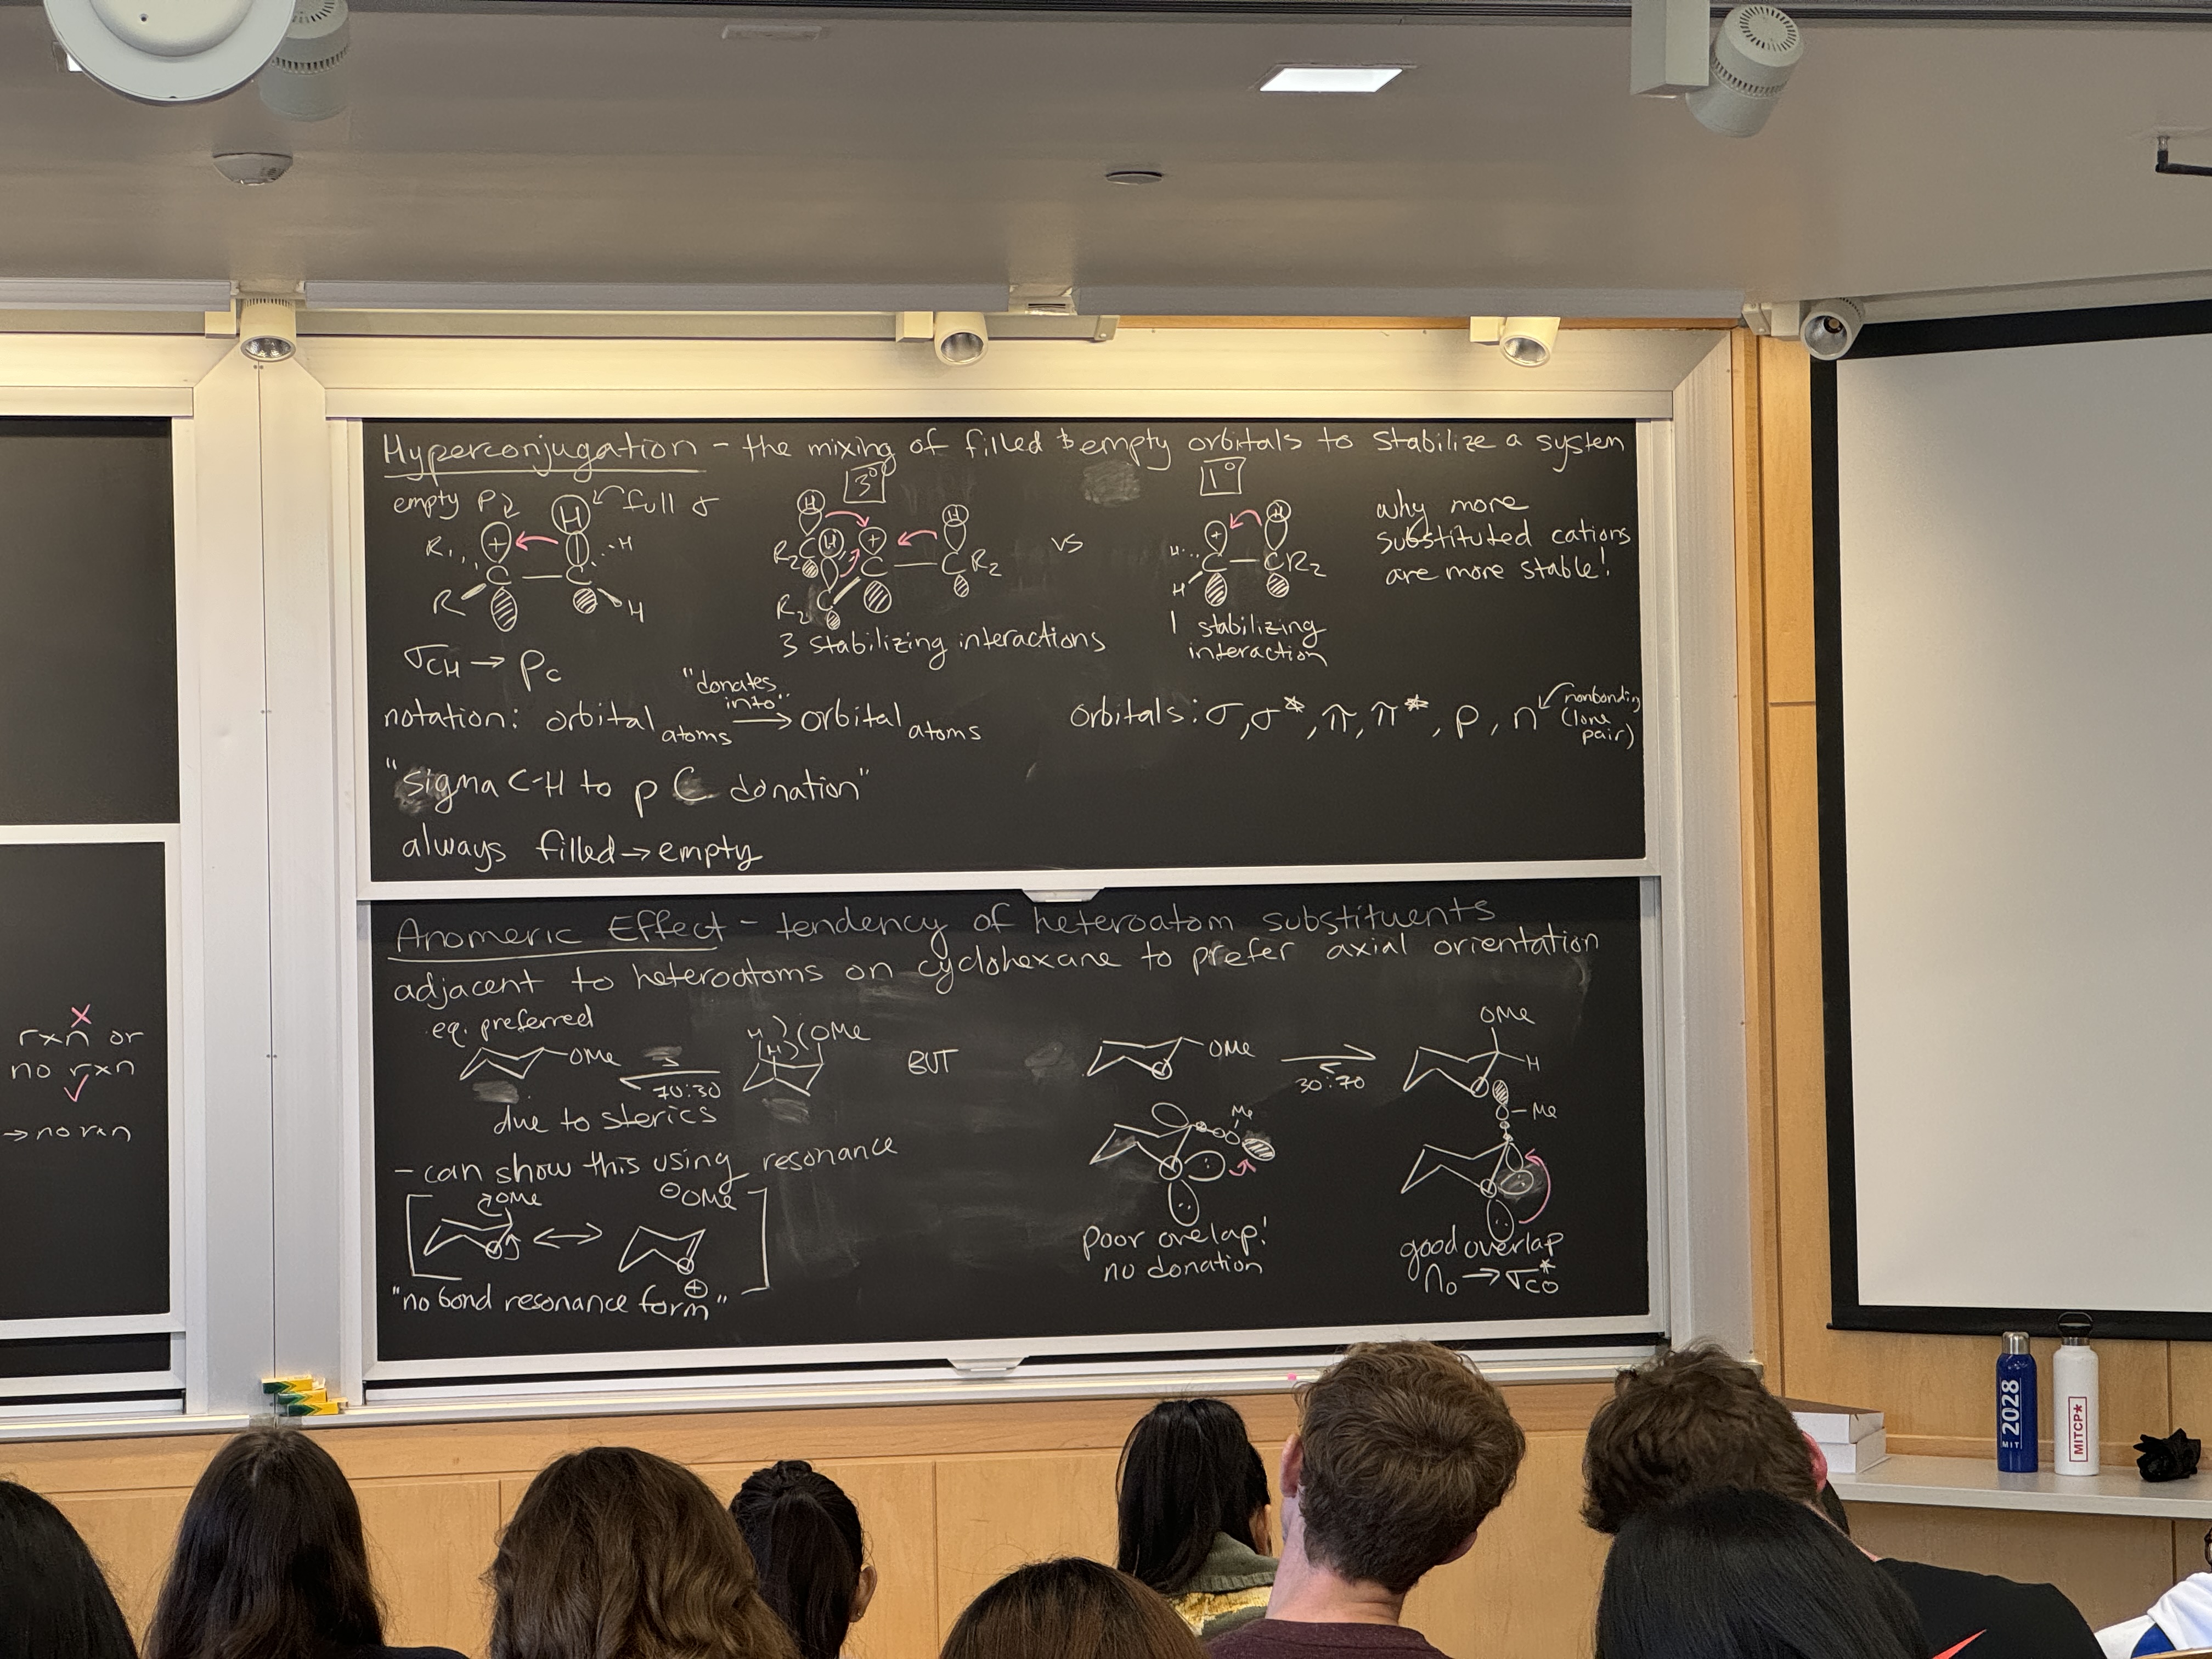 Hyperconjugation - the mixing of filled & empty orbitals to stabilize a system
empty p
full σ
R
R
H
+
C
C
H
H
σCH → pC
3°
H
H
H
+
R2C
C
CR2
R2C
3 stabilizing interactions
vs
1°
H
+
H
H
C
CR2
1 stabilizing
interaction
why more
substituted cations
are more stable!
"donates
into"
notation: orbital atoms → orbital atoms
orbitals: σ, σ*, π, π*, p, n
nonbonding
(lone
pair)
"sigma C-H to p C donation"
always filled → empty
Anomeric Effect - tendency of heteroatom substituents
adjacent to heteroatoms on cyclohexane to prefer axial orientation
eq. preferred
OMe
70:30
H
H
OMe
due to sterics
BUT
O
OMe
30:70
OMe
H
O
- can show this using resonance
OMe
O
⊖OMe
O
⊕
"no bond resonance form"
Me
O
O
poor ovelap!
no donation
O-Me
O
good overlap
nO → σ*CO
rxn or
no rxn
→ no rxn
2028
MIT
MITCP*